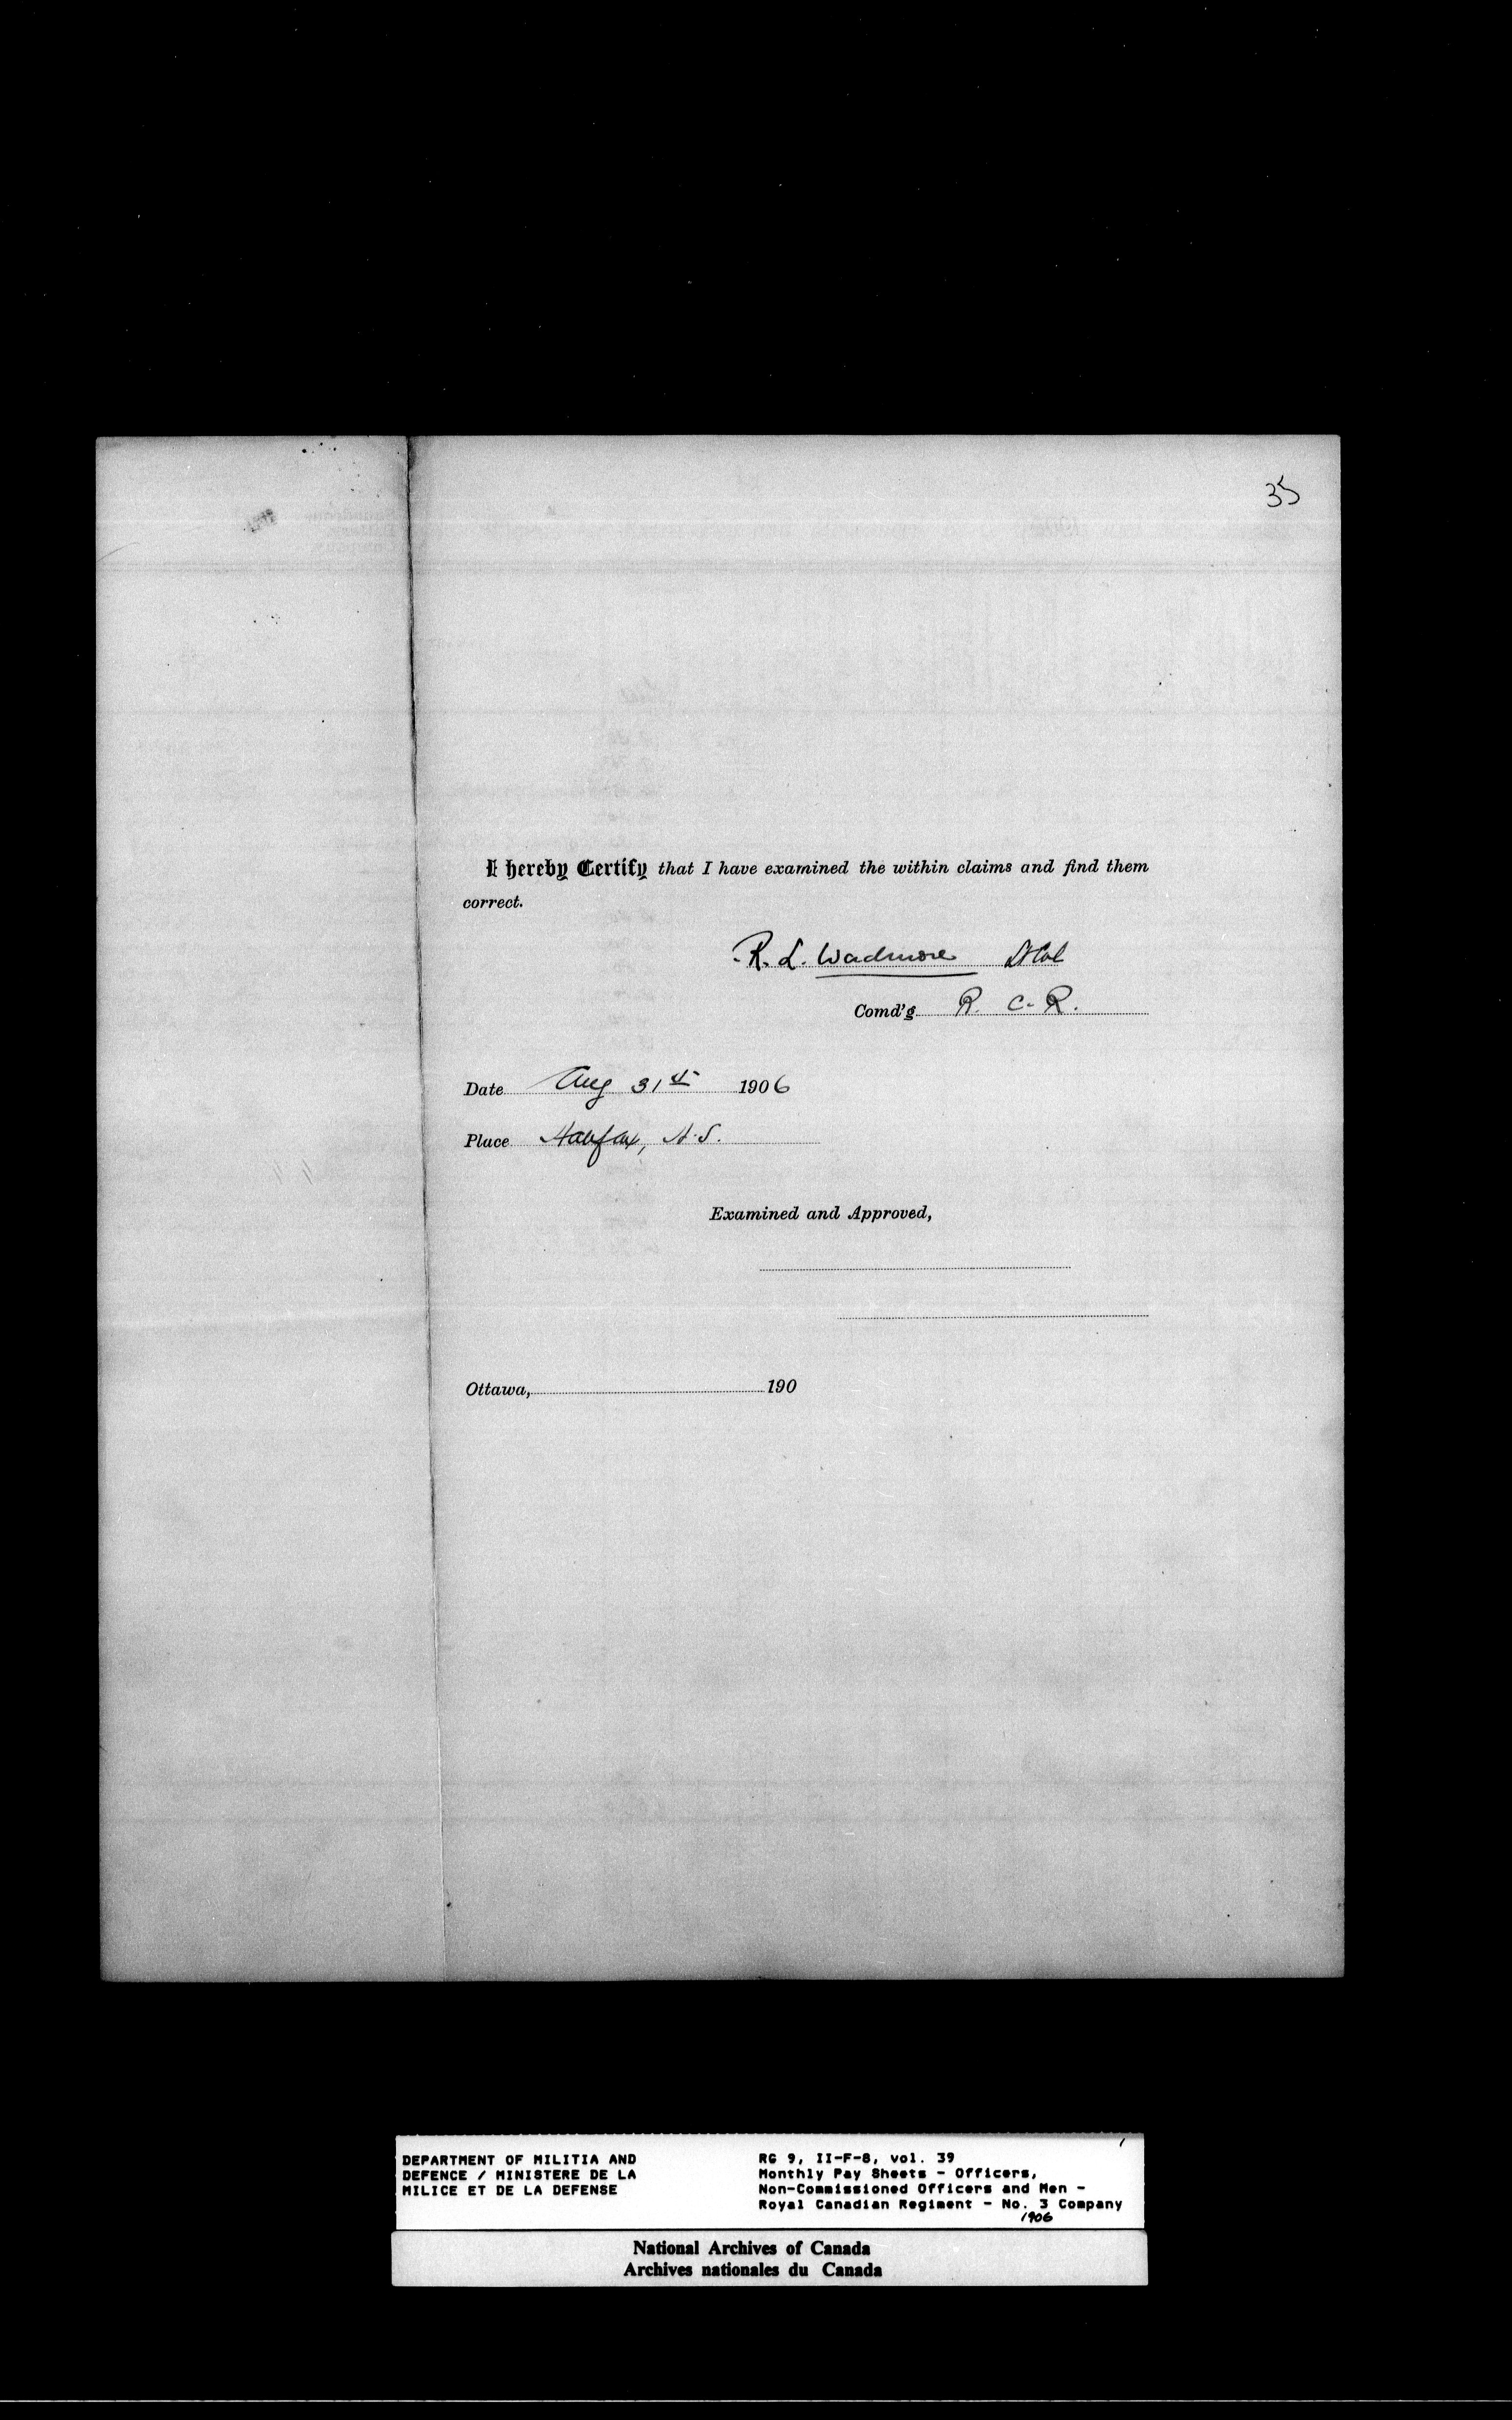 35
I hereby Certify that I have examined the within claims and find them
correct.
R. L. Wadmore Lt Col
Comd'g R. C. R.
Date Aug 31st 1906
Place Halifax, N.S.
Examined and Approved,
Ottawa, 190
DEPARTMENT OF MILITIA AND
DEFENCE / MINISTERE DE LA
MILICE ET DE LA DEFENSE
RG 9, II-F-8, vol. 39
Monthly Pay Sheets - Officers,
Non-Commissioned Officers and Men -
Royal Canadian Regiment - No. 3 Company
1906
National Archives of Canada
Archives nationales du Canada